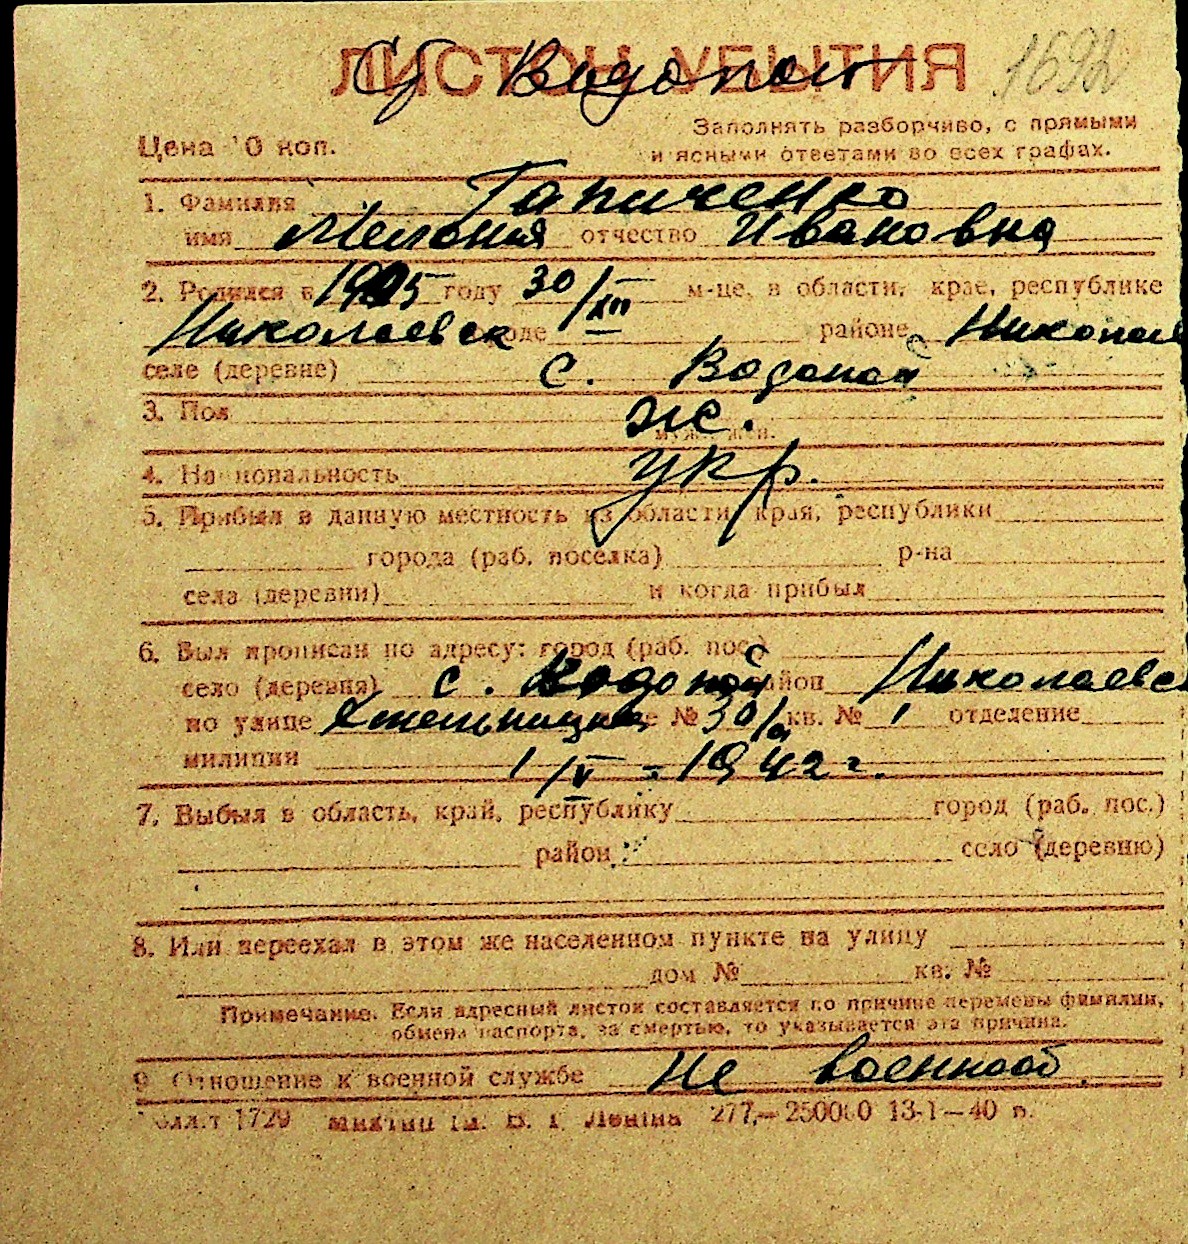 ЛИСТОК УБЫТИЯ
С Водопой
1692
Цена 10 коп.
Заполнять разборчиво, с прямыми
и ясными ответами во всех графах.
1. Фамилия Гапиченко
имя Мелания отчество Ивановна
2. Родился в году 30/XII м-це, в области, крае, республике
Николаевск городе районе Николаев
селе (деревне) с. Водопой
3. Пол ж.
муж., жен.
4. Национальность укр.
5. Прибыл в данную местность из области, края, республики
города (раб. поселка) р-на
села (деревни) и когда прибыл
6. Был прописан по адресу: город (раб. пос.)
село (деревня) с. Водопой район Николаевск
по улице № 30/а кв. № 1 отделение
милиции 1/V - 1942 г.
7. Выбыл в область, край, республику город (раб. пос.)
район село (деревню)
8. Или переехал в этом же населенном пункте на улицу
дом № кв. №
Примечание. Если адресный листок составляется по причине перемены фамилии,
обмена паспорта, за смертью, то указывается эта причина.
9. Отношение к военной службе Не военнооб.
1729 ім. В. І. Леніна 277.—250000 13-1—40 п.